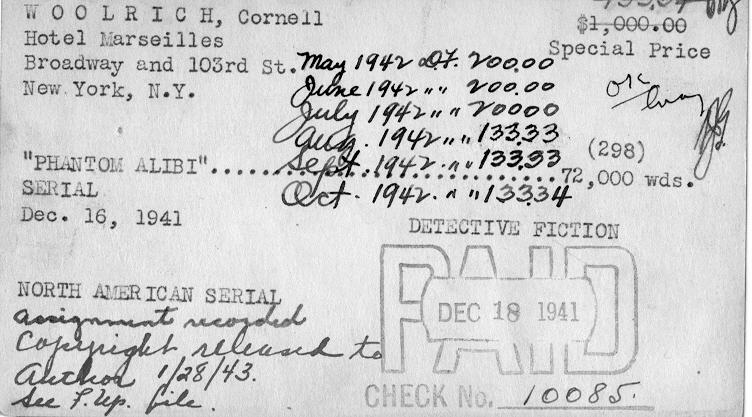 W O O L R I C H, Cornell
$1,000.00
Hotel Marseilles
Special Price
Broadway and 103rd St.
May 1942 D.F. 200.00
New York, N.Y.
June 1942 " " 200.00
OK
July 1942 " " 20000
Aug. 1942 " " 133.33
(298)
"PHANTOM ALIBI"
Sept. 1942. " " 133.33
72,000 wds.
SERIAL
Oct. 1942. " " 133.34
Dec. 16, 1941
DETECTIVE FICTION
PAID
DEC 18 1941
NORTH AMERICAN SERIAL
assignment recorded
Copyright released to
Author 1/28/43.
See F. Up. file.
CHECK No. 10085.